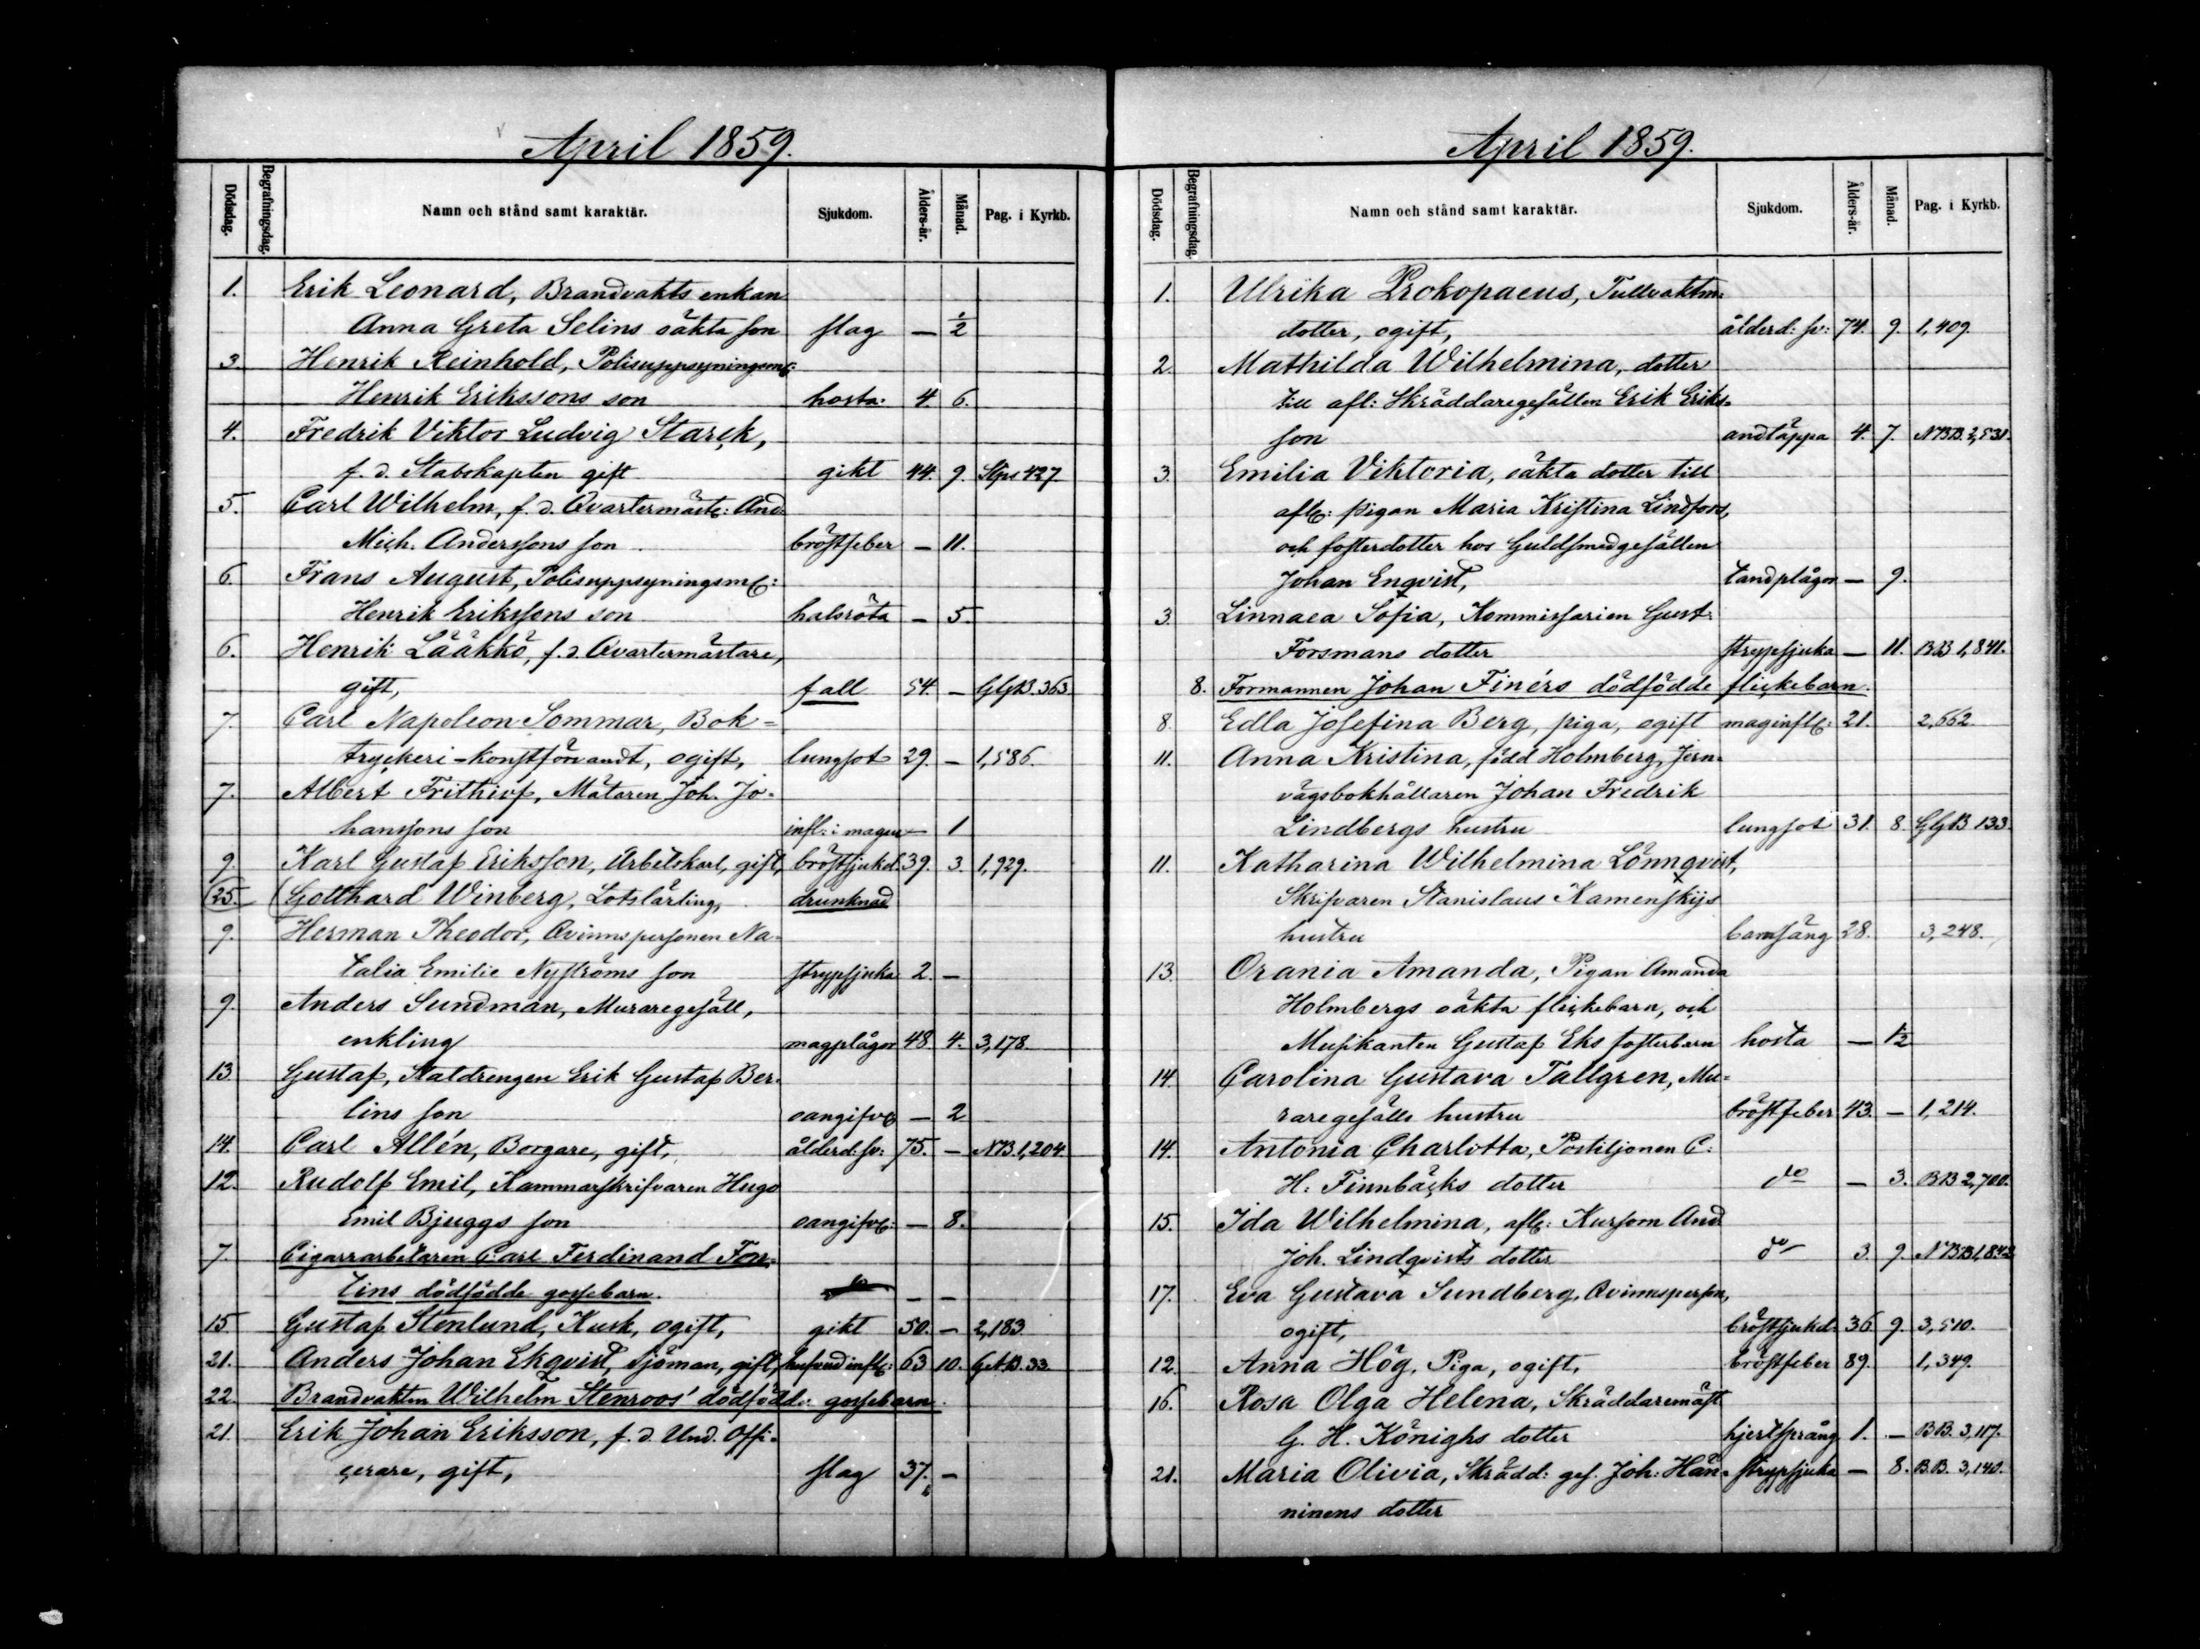 April 1859.
Dödsdag. Begrafningsdag. Namn och stånd samt karaktär. Sjukdom. Ålders-år. Månad. Pag. i Kyrkb.
1. Erik Leonard, Brandvakts enkan
Anna Greta Selins oäkta son slag — 1/2
3. Henrik Reinhold, Polisuppsyningsm:
Henrik Erikssons son hosta: 4. 6.
4. Fredrik Viktor Ludvig Starck,
f. d. Stabskapten gift gikt 44. 9. Stps 427.
5. Carl Wilhelm, f. d. Qvartermäst: And.
Mich. Anderssons son bröstfeber — 11.
6. Frans August, Polisuppsyningsm:
Henrik Erikssons son halsröta — 5.
6. Henrik Lääkkö, f. d. Qvartermästare,
gift, fall 54. — GGB. 363
7. Carl Napoleon Sommar, Bok=
tryckeri-konstförvandt, ogift, lungsot 29. — 1,586.
7. Albert Frithiof, Mätaren Joh. Jo-
hanssons son infl: i magen — 1
9. Karl Gustaf Eriksson, Arbetskarl, gift, bröstsjukd. 39. 3. 1,929.
25. (Gotthard Winberg, Lotslärling, drunknad
9. Herman Theodor, Qvinnspersonen Na-
talia Emilie Nyströms son strypsjuka 2. —
9. Anders Sundman, Muraregesäll,
enkling magplågor 48. 4. 3,178.
13. Gustaf, Staldrengen Erik Gustaf Ber-
lins son oangifve — 2
14. Carl Allén, Borgare, gift, ålderd: sv: 75. — NB. 1,204.
12. Rudolf Emil, Kammarskrifvaren Hugo
Emil Bjuggs son oangifve: — 8.
7. Cigarrarbetaren Carl Ferdinand Fon-
tins dödfödde gossebarn. — —
15. Gustaf Stenlund, Kusk, ogift, gikt 50. — 2,183.
21. Anders Johan Ekqvist, sjöman, gift, hufvud infl: 63 10. GAB. 33.
22. Brandvakten Wilhelm Stenroos' dödfödde: gossebarn.
21. Erik Johan Eriksson, f. d. Und. Offi-
cerare, gift, slag 37. —
April 1859.
Dödsdag. Begrafningsdag. Namn och stånd samt karaktär. Sjukdom. Ålders-år. Månad. Pag. i Kyrkb.
1. Ulrika Prokopaeus, Tullvaktm:
dotter, ogift, ålderd: sv: 74. 9. 1,409.
2. Mathilda Wilhelmina, dotter
till afl: Skräddaregesällen Erik Eriks-
son andtäppa 4. 7. NBB. 2,531.
3. Emilia Viktoria, oäkta dotter till
afl: pigan Maria Kristina Lindfors,
och fosterdotter hos Guldsmedgesällen
Johan Enqvist, tandplågor — 9.
3. Linnaea Sofia, Kommissarien Gust:
Forsmans dotter strypsjuka — 11. BB 1,841.
8. Formannen Johan Finérs dödfödde flickebarn.
8. Edla Josefina Berg, piga, ogift maginfl: 21. 2,662.
11. Anna Kristina, född Holmberg, Jern-
vägsbokhållaren Johan Fredrik
Lindbergs hustru lungsot 31. 8. GGB 133.
11. Katharina Wilhelmina Lönnqvist,
Skrifvaren Stanislaus Kamenskijs
hustru barnsäng 28. 3,248.
13. Orania Amanda, Pigan Amanda
Holmbergs oäkta flickebarn, och
Musikanten Gustaf Eks fosterbarn hosta — 1/2
14. Carolina Gustava Tallgren, Mu-
raregesälls hustru bröstfeber 43. — 1,214.
14. Antonia Charlotta, Postiljonen C:
H: Finnbäcks dotter do — 3. BB 2,700.
15. Ida Wilhelmina, afl: Kursorn And.
Joh. Lindqvists dotter do 3. 9. NBB 1,843
17. Eva Gustava Sundberg, Qvinnsperson,
ogift, bröstsjukd: 36 9. 3,510.
12. Anna Hög, Piga, ogift, bröstfeber 89. 1,349.
16. Rosa Olga Helena, Skräddaremäst
G. H. Könighs dotter hjertsprång 1. — BB. 3,117.
21. Maria Olivia, Skrädd: ges. Joh: Hän- strypsjuka — 8. B.B. 3,140.
ninens dotter